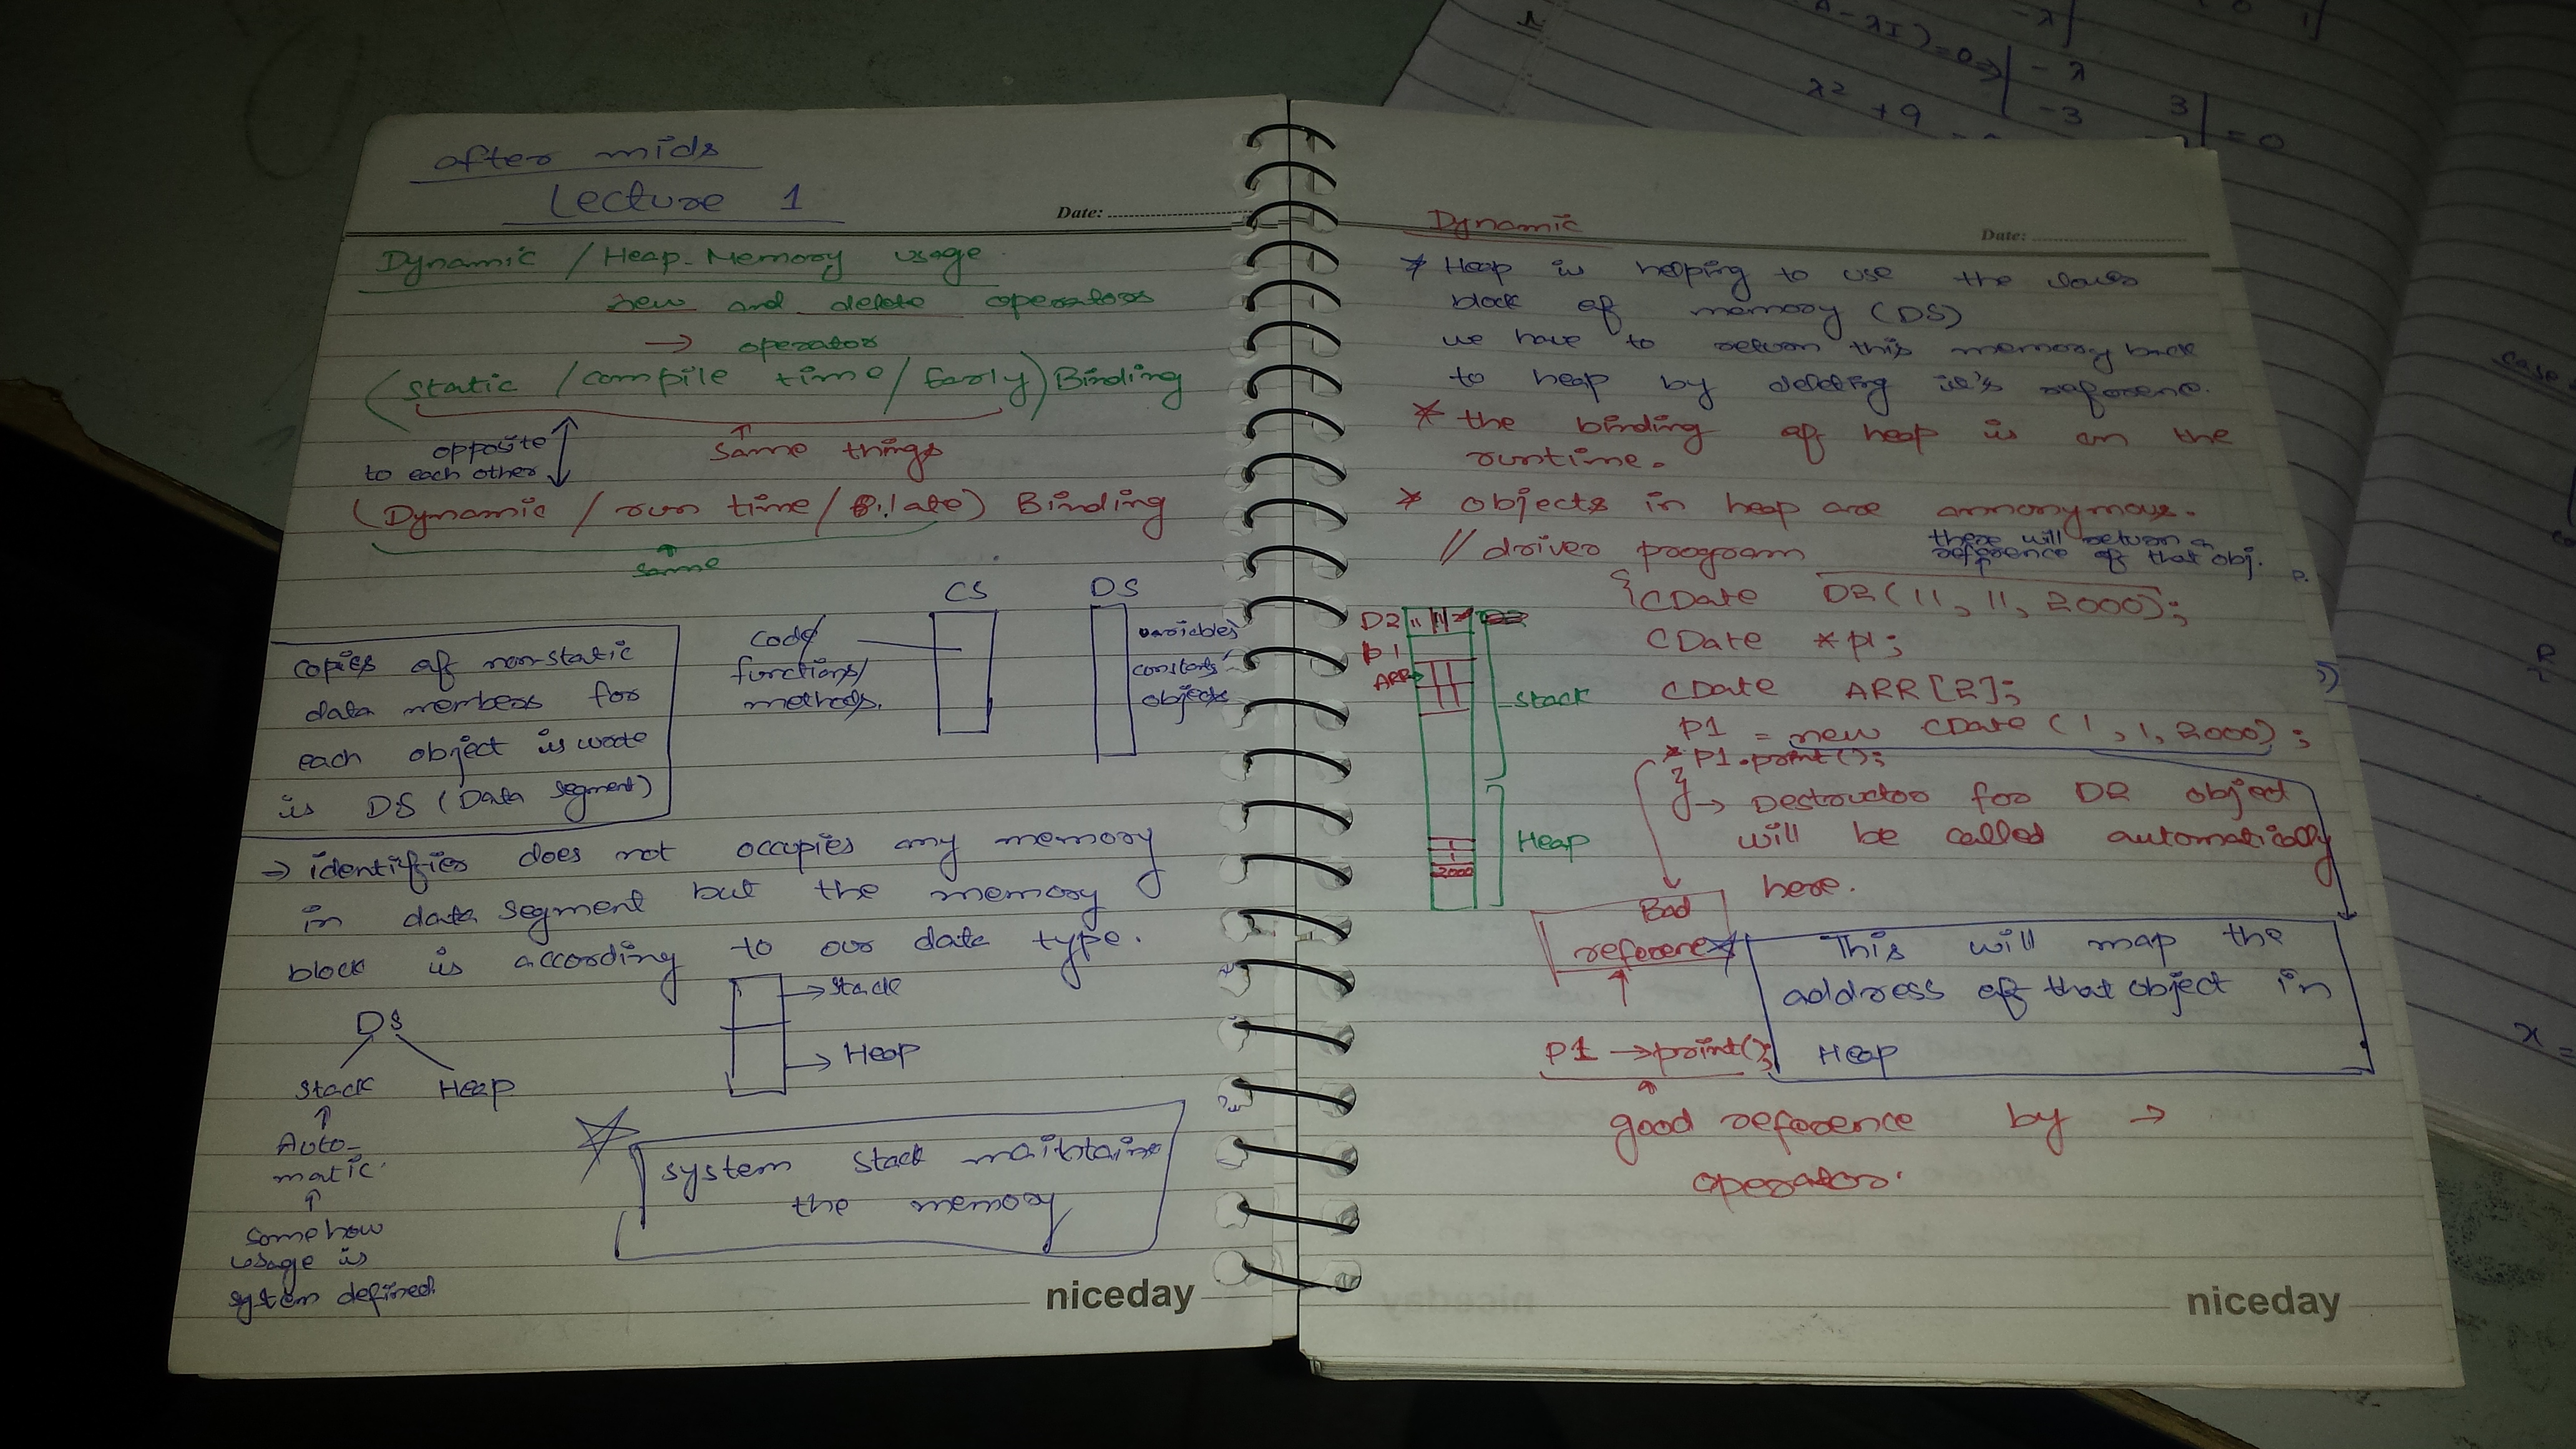 after mids
Lecture 1
Date:
Dynamic / Heap-Memory usage
new and delete operators
→ operator
(static / compile time / Early) Binding
opposite
to each other
same things
(Dynamic / run time / late) Binding
same
CS
DS
code/
functions/
methods.
variables
constants
objects
copies of non-static
data members for
each object is
is DS (Data segment)
→ identifies does not occupies any memory
in data segment but the memory
block is according to our data type.
→ stack
→ Heap
DS
stack
Heap
Auto-
matic
somehow
usage is
system defined.
system stack maintains
the memory
niceday
Dynamic
Date:
* Heap is helping to use the
block of memory (DS)
we have to return this memory back
to heap by deleting it's reference.
* the binding of heap is on the
runtime.
* objects in heap are annonymous.
// driver program
there will return a
reference of that obj.
{ CDate D2(11, 11, 2000);
CDate *p1;
CDate ARR[2];
P1 = new CDate (1, 1, 2000);
*P1.print();
}
→ Destructor for D2 object
will be called automatically
here.
D2
P1
ARR
stack
Heap
2000
Bad
reference
This will map the
address of that object in
Heap
P1 → print();
good reference by →
operator.
niceday
λ² + 9
- λ
-3
3
= 0